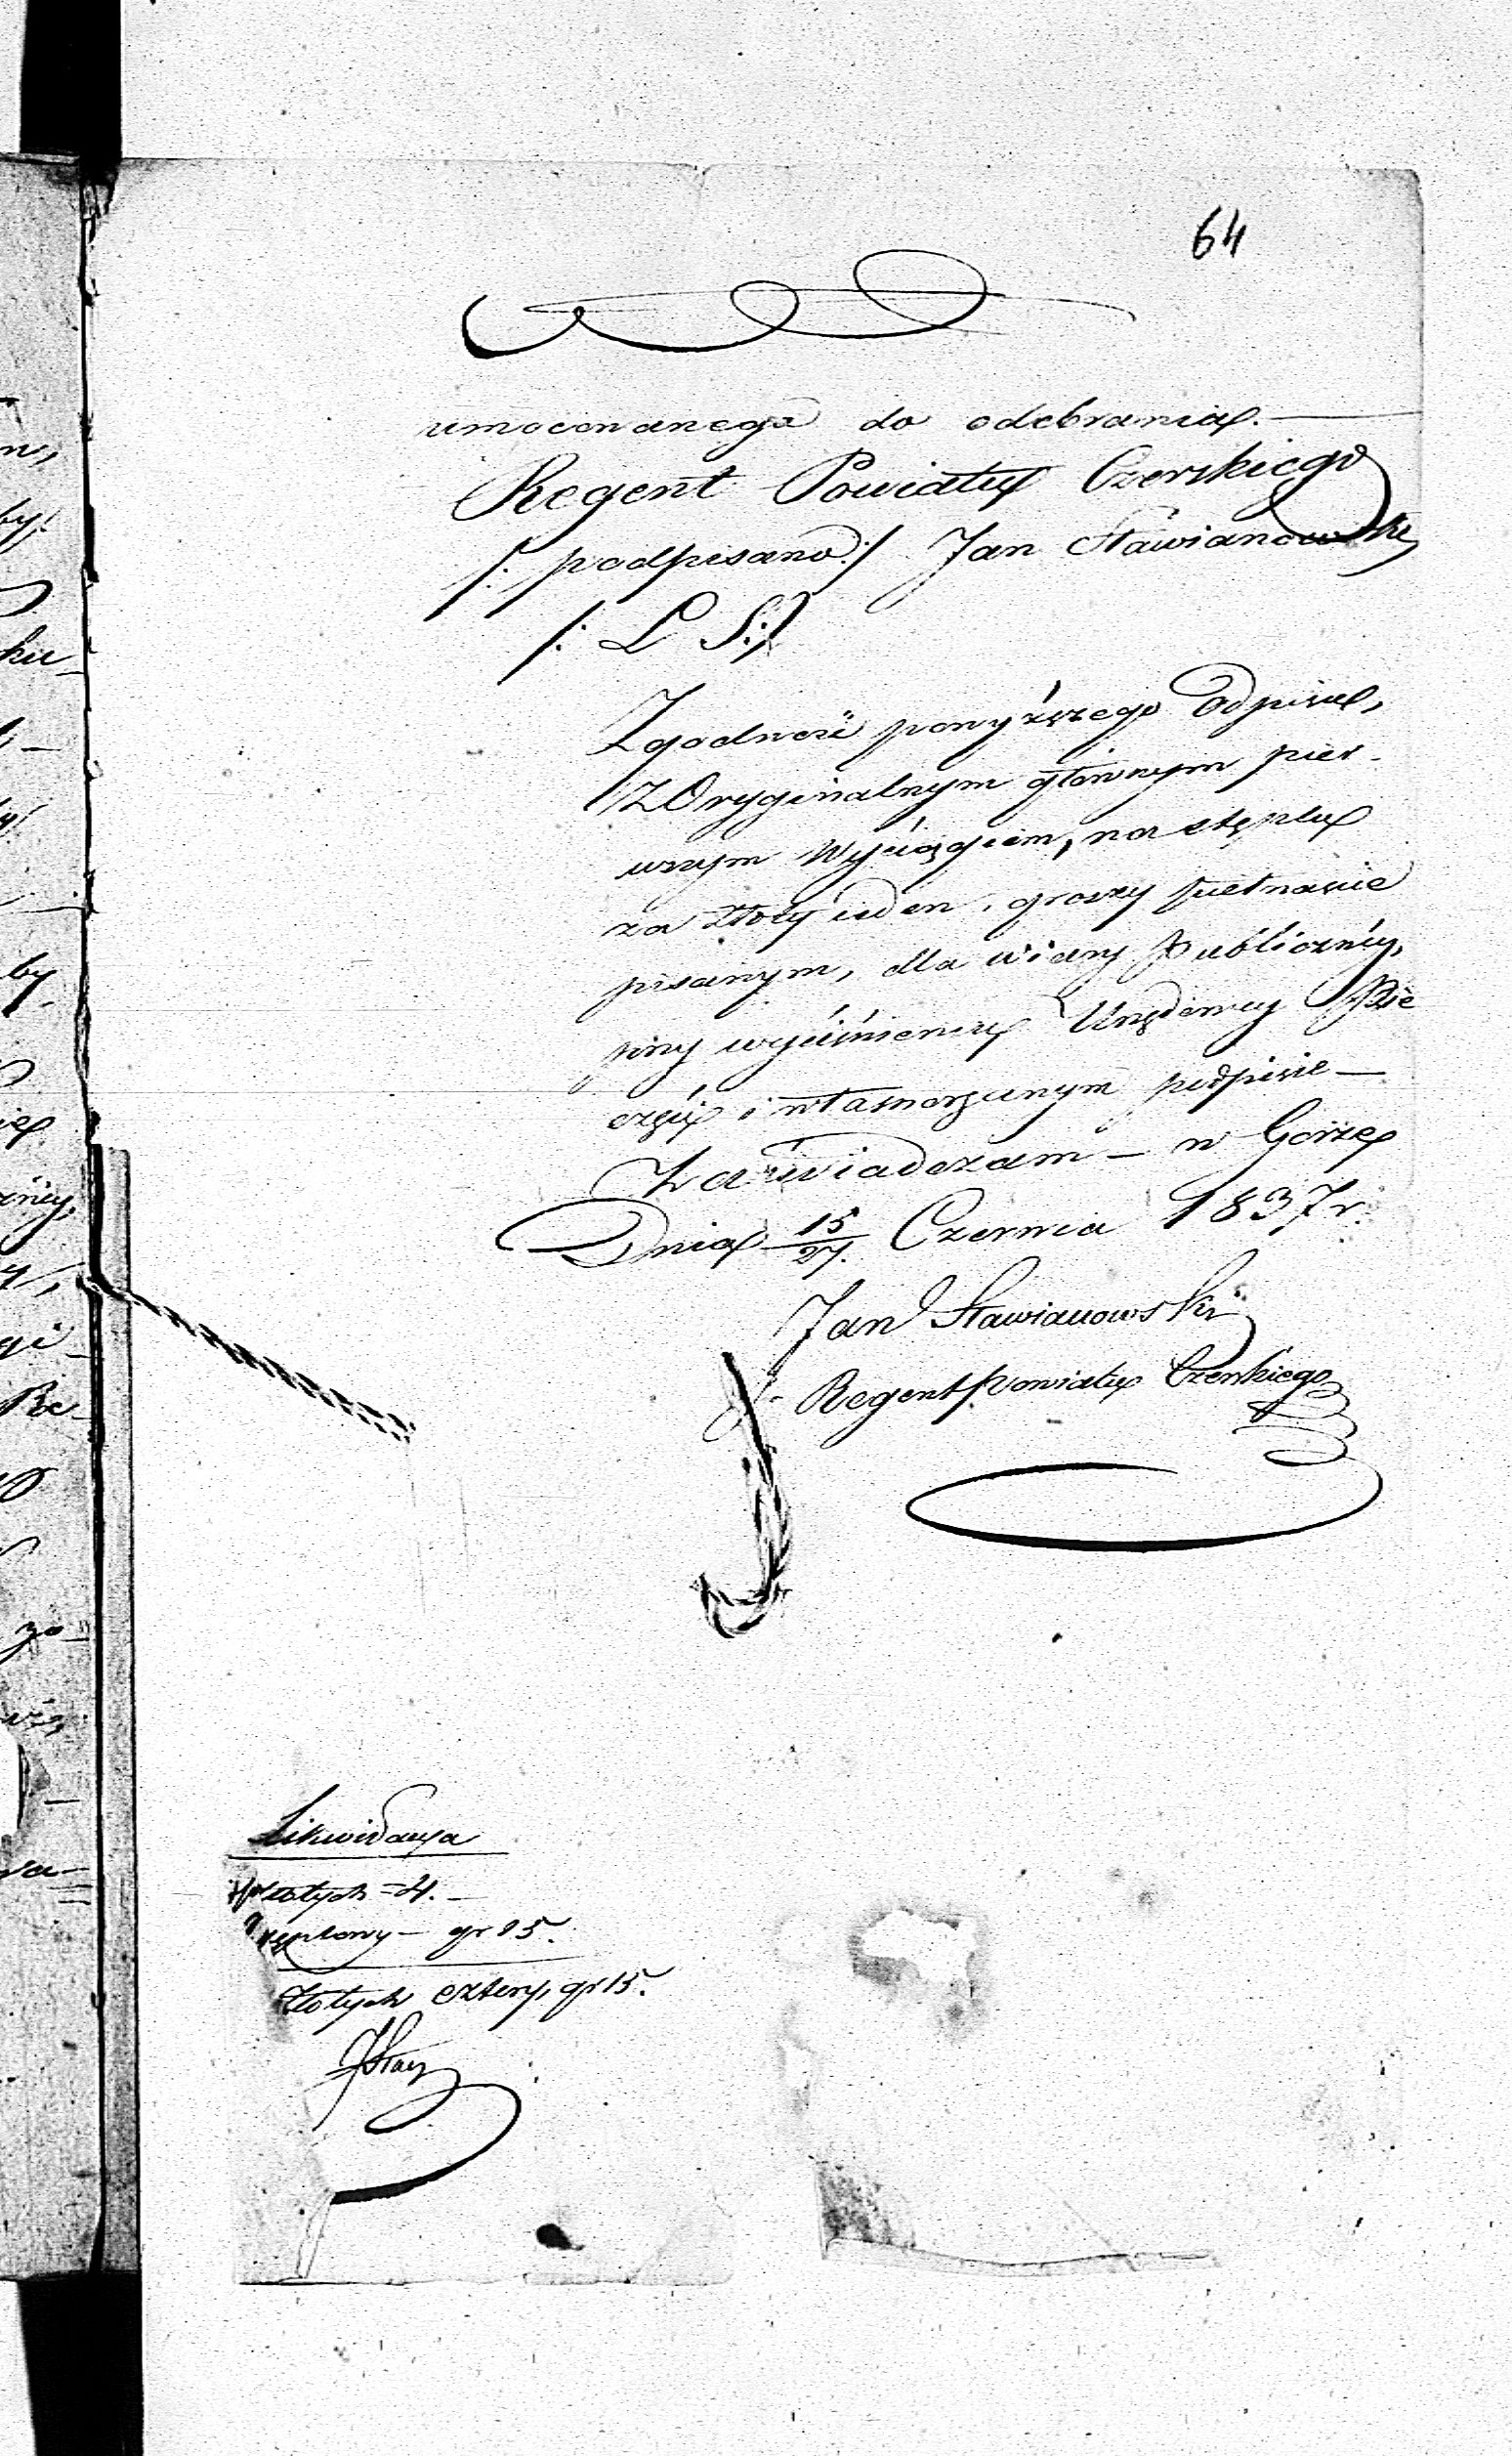 64
umocowanego do odebrania.
Regent Powiatu Czerskiego
/: podpisano :/ Jan Sławianowski
/: L S :/
Zgodność powyższego Odpisu,
z Oryginalnym głównym pier-
wszym Wyciągiem, na stęplu
za złoty ieden, groszy pietnaście
pisanym, dla wiary Publiczney,
przy wyciśnieniu Urzędowey Pie
częci, i własnoręcznym podpisie —
Zaświadczam — w Górze
Dnia 15/27. Czerwca 1837 r.
Jan Sławianowski
Regent Powiatu Czerskiego
Likwidacya
złotych = 4. —
stęplowy — gr 15.
Złotych cztery, gr 15.
JSław